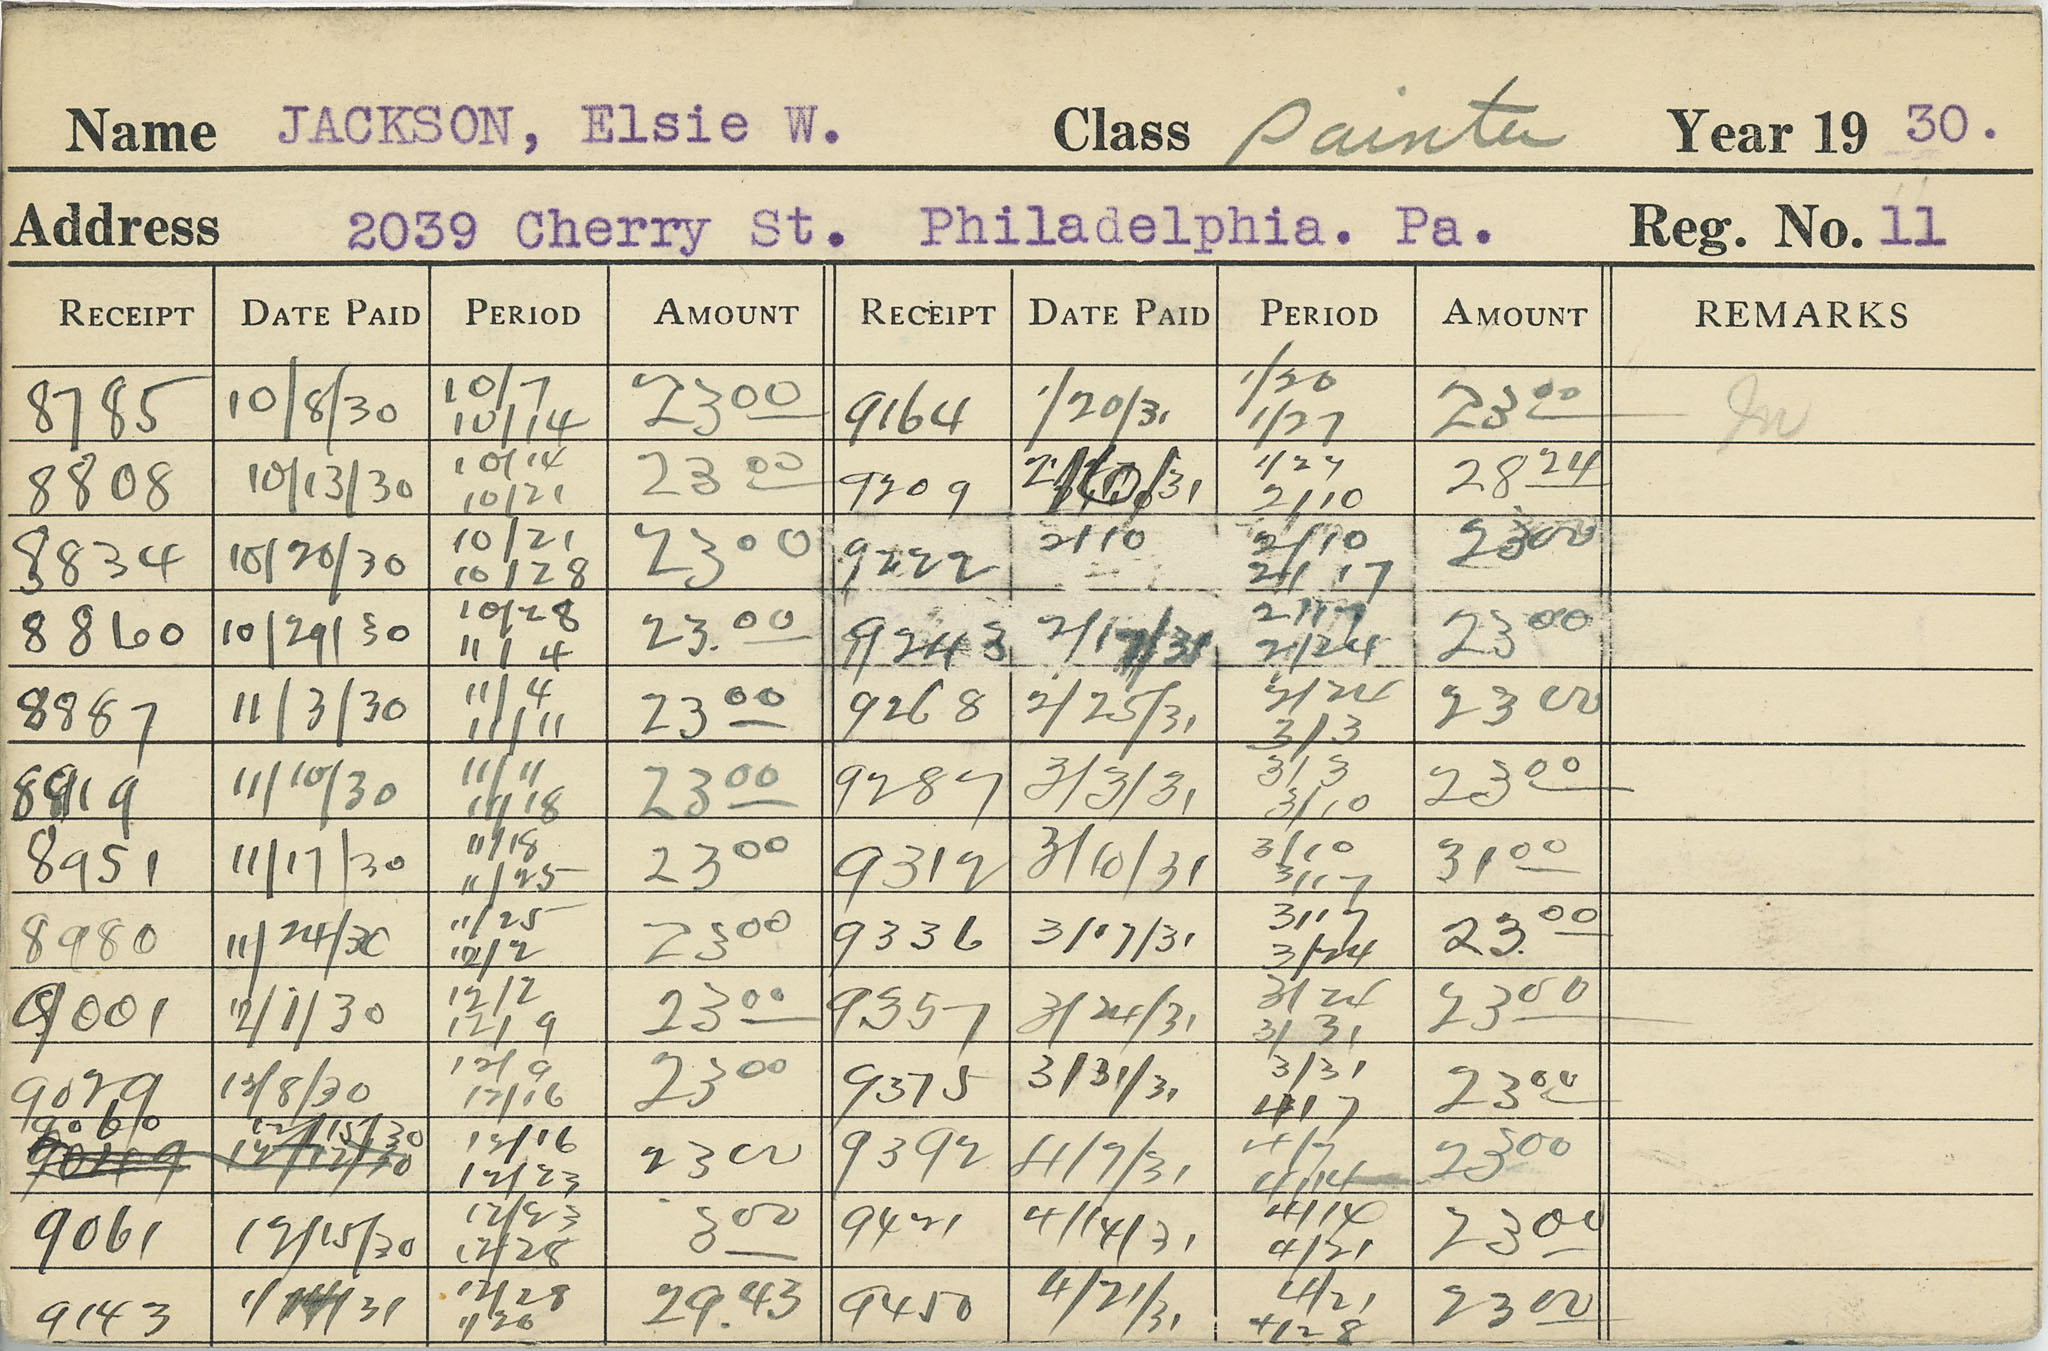 Name JACKSON, Elsie W. Class Painter Year 19 30.
Address 2039 Cherry St. Philadelphia. Pa. Reg. No. 11
RECEIPT DATE PAID PERIOD AMOUNT RECEIPT DATE PAID PERIOD AMOUNT REMARKS
8785 10/8/30 10/7 10/14 23 00 9164 1/20/31 1/20 1/27 23 00
8808 10/13/30 10/14 10/21 23 00 9209 1/27 2/10 28 24
8834 10/20/30 10/21 10/28 23 00 9222 2/10 2/10 2/17 23 00
8860 10/29/30 10/28 11/4 23.00 9243 2/17/31 2/17 2/24 23 00
8887 11/3/30 11/4 11/11 23 00 9268 2/25/31 2/24 3/3 23 00
8919 11/10/30 11/11 11/18 23 00 9287 3/3/31 3/3 3/10 23 00
8951 11/17/30 11/18 11/25 23 00 9312 3/10/31 3/10 3/17 31 00
8980 11/24/30 11/25 12/2 23 00 9336 3/17/31 3/17 3/24 23.00
9001 12/1/30 12/2 12/9 23 00 9357 3/24/31 3/24 3/31 23 00
9029 12/8/30 12/9 12/16 23 00 9375 3/31/31 3/31 4/7 23 00
9060 12/15/30 12/16 12/23 23 00 9392 4/7/31 4/7 4/14 23 00
9061 12/15/30 12/23 12/28 8 00 9421 4/14/31 4/14 4/21 23 00
9143 12/28 1/20 29.43 9450 4/21/31 4/21 4/28 23 00